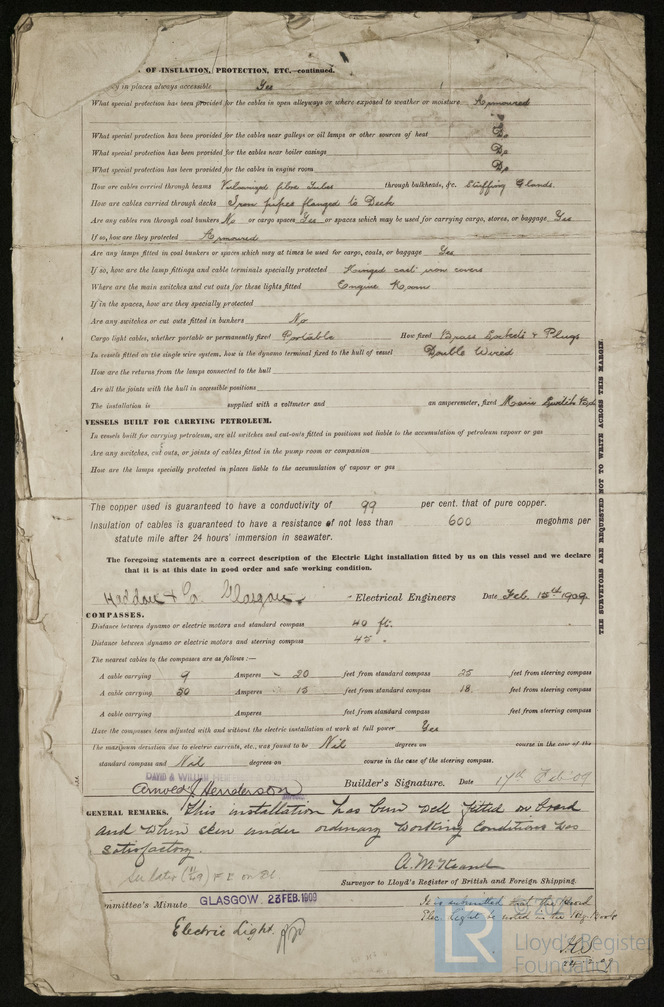 OF INSULATION, PROTECTION, ETC.—continued.
y in places always accessible Yes
What special protection has been provided for the cables in open alleyways or where exposed to weather or moisture. Armoured
What special protection has been provided for the cables near galleys or oil lamps or other sources of heat Do
What special protection has been provided for the cables near boiler casings Do
What special protection has been provided for the cables in engine room Do
How are cables carried through beams Vulcanized fibre Tubes through bulkheads, &c. Stuffing Glands.
How are cables carried through decks Iron pipes flanged to Deck
Are any cables run through coal bunkers No or cargo spaces Yes or spaces which may be used for carrying cargo, stores, or baggage Yes
If so, how are they protected Armoured
Are any lamps fitted in coal bunkers or spaces which may at times be used for cargo, coals, or baggage Yes
If so, how are the lamp fittings and cable terminals specially protected Hinged cast iron covers
Where are the main switches and cut outs for these lights fitted Engine Room
If in the spaces, how are they specially protected
Are any switches or cut outs fitted in bunkers No
Cargo light cables, whether portable or permanently fixed Portable How fixed Brass Sockets & Plugs
In vessels fitted on the single wire system, how is the dynamo terminal fixed to the hull of vessel Double Wired
How are the returns from the lamps connected to the hull
Are all the joints with the hull in accessible positions
The installation is supplied with a voltmeter and an amperemeter, fixed Main Switch Bd
VESSELS BUILT FOR CARRYING PETROLEUM.
In vessels built for carrying petroleum, are all switches and cut-outs fitted in positions not liable to the accumulation of petroleum vapour or gas
Are any switches, cut outs, or joints of cables fitted in the pump room or companion
How are the lamps specially protected in places liable to the accumulation of vapour or gas
THE SURVEYORS ARE REQUESTED NOT TO WRITE ACROSS THIS MARGIN
The copper used is guaranteed to have a conductivity of 99 per cent. that of pure copper.
Insulation of cables is guaranteed to have a resistance of not less than 600 megohms per
statute mile after 24 hours' immersion in seawater.
The foregoing statements are a correct description of the Electric Light installation fitted by us on this vessel and we declare
that it is at this date in good order and safe working condition.
& Co. Glasgow. Electrical Engineers Date Feb. 15th 1909.
COMPASSES.
Distance between dynamo or electric motors and standard compass 40 ft.
Distance between dynamo or electric motors and steering compass 45 "
The nearest cables to the compasses are as follows :—
A cable carrying 9 Amperes 20 feet from standard compass 25 feet from steering compass
A cable carrying 50 Amperes 15 feet from standard compass 18 feet from steering compass
A cable carrying Amperes feet from standard compass feet from steering compass
Have the compasses been adjusted with and without the electric installation at work at full power Yes
The maximum deviation due to electric currents, etc., was found to be Nil degrees on course in the case of the
standard compass and Nil degrees on course in the case of the steering compass.
DAVID & WILLIAM
J Henderson Builder's Signature. Date 17th Feb 09
GENERAL REMARKS. This installation has been well fitted on board
and when seen under ordinary working conditions was
satisfactory.
See later F E on Bl
Surveyor to Lloyd's Register of British and Foreign Shipping.
mmittee's Minute GLASGOW. 23 FEB. 1909
Electric Light.
It is submitted that the Record
Elec. Light be noted in the Reg. Book
LR
Lloyd's Register
Foundation